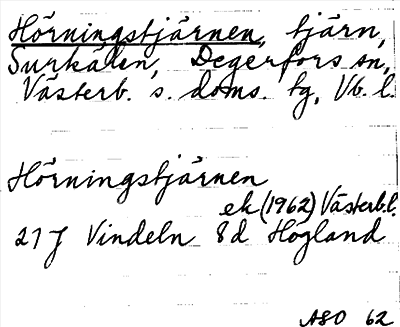 Hörningstjärnen, tjärn,
Surkålen, Degerfors sn,
Västerb. s. doms. tg, Vb. l.
Hörningstjärnen
ek (1962) Västerb.l.
21 J Vindeln 8d Högland
ASO 62